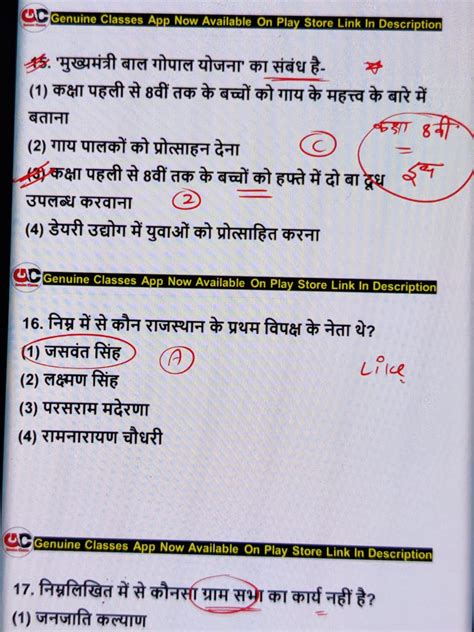 GC Genuine Classes App Now Available On Play Store Link In Description
15. 'मुख्यमंत्री बाल गोपाल योजना' का संबंध है-
(1) कक्षा पहली से 8वीं तक के बच्चों को गाय के महत्त्व के बारे में
बताना
कक्षा 8वी
(2) गाय पालकों को प्रोत्साहन देना
C
(3) कक्षा पहली से 8वीं तक के बच्चों को हफ्ते में दो बा दूध
उपलब्ध करवाना
2
(4) डेयरी उद्योग में युवाओं को प्रोत्साहित करना
GC Genuine Classes App Now Available On Play Store Link In Description
16. निम्न में से कौन राजस्थान के प्रथम विपक्ष के नेता थे?
(1) जसवंत सिंह
A
Like
(2) लक्ष्मण सिंह
(3) परसराम मदेरणा
(4) रामनारायण चौधरी
GC Genuine Classes App Now Available On Play Store Link In Description
17. निम्नलिखित में से कौनसा ग्राम सभा का कार्य नहीं है?
(1) जनजाति कल्याण